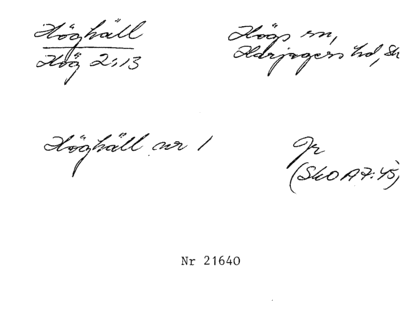 Höghäll
Hög 2:13
Högs sn,
Harjagers hd, Sk
Höghäll nr 1
Jr
(SkO A7:45)
Nr 21640